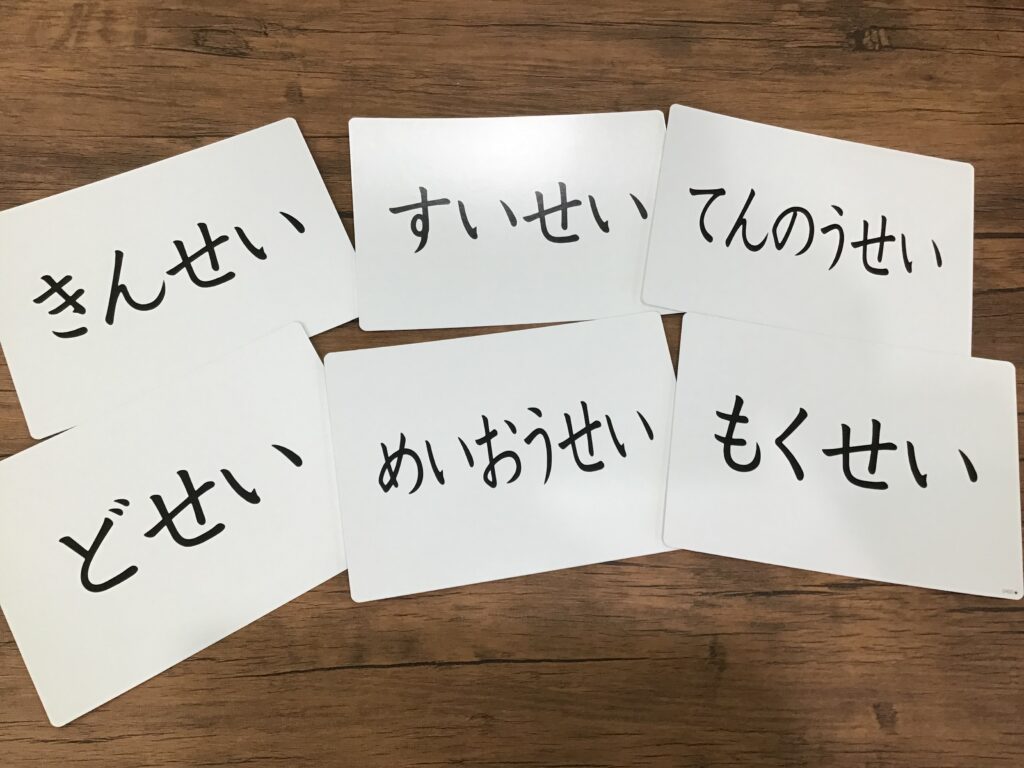 きんせい
すいせい
てんのうせい
どせい
めいおうせい
もくせい